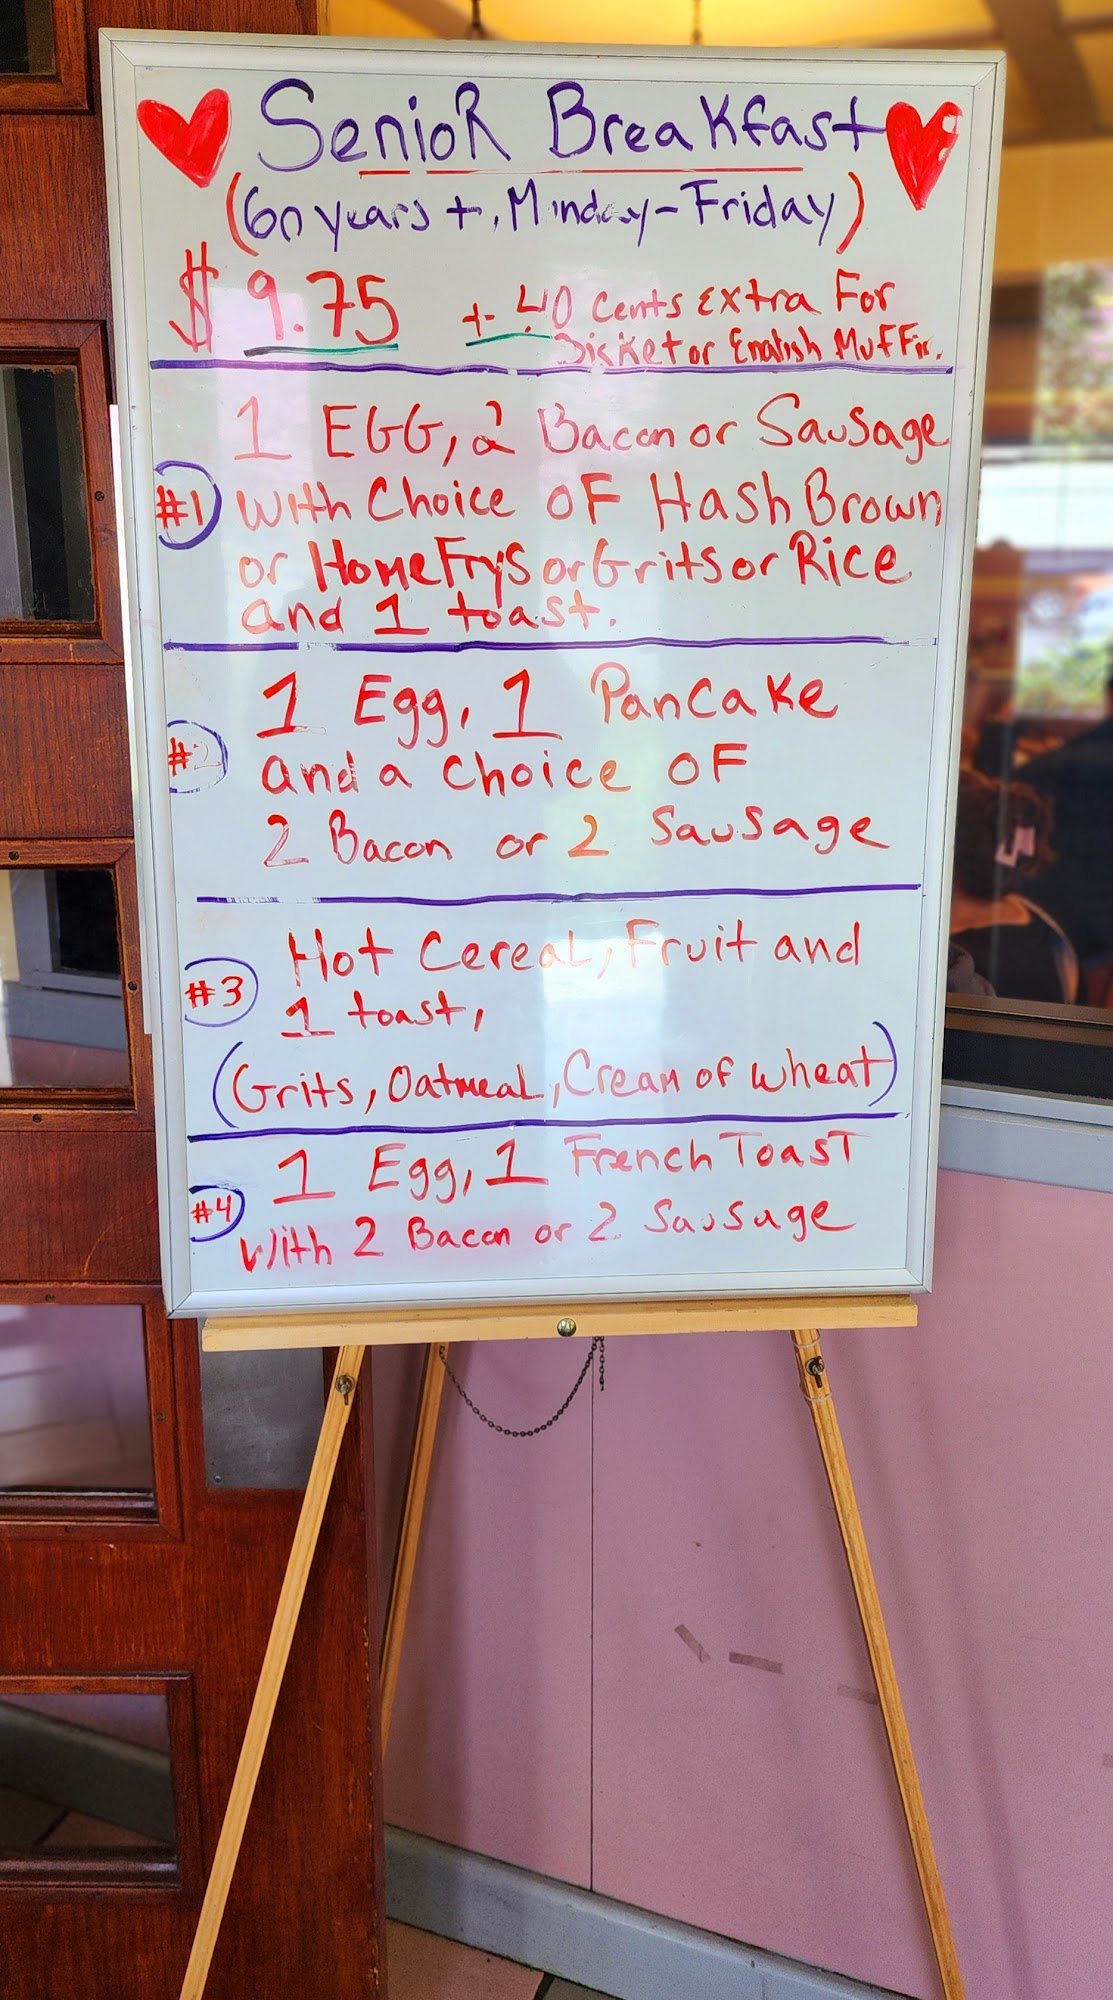 SenioR Breakfast
(60 years +, Minday-Friday)
$ 9.75 + .40 Cents Extra For
Bisket or English Muffin.
1 EGG, 2 Bacon or Sausage
#1 With Choice OF Hash Brown
or Home Frys or Grits or Rice
and 1 toast.
1 Egg, 1 Pancake
#2 and a choice OF
2 Bacon or 2 Sausage
Hot Cereal, Fruit and
#3 1 toast,
(Grits, Oatmeal, Cream of wheat)
1 Egg, 1 French Toast
#4 With 2 Bacon or 2 Sausage